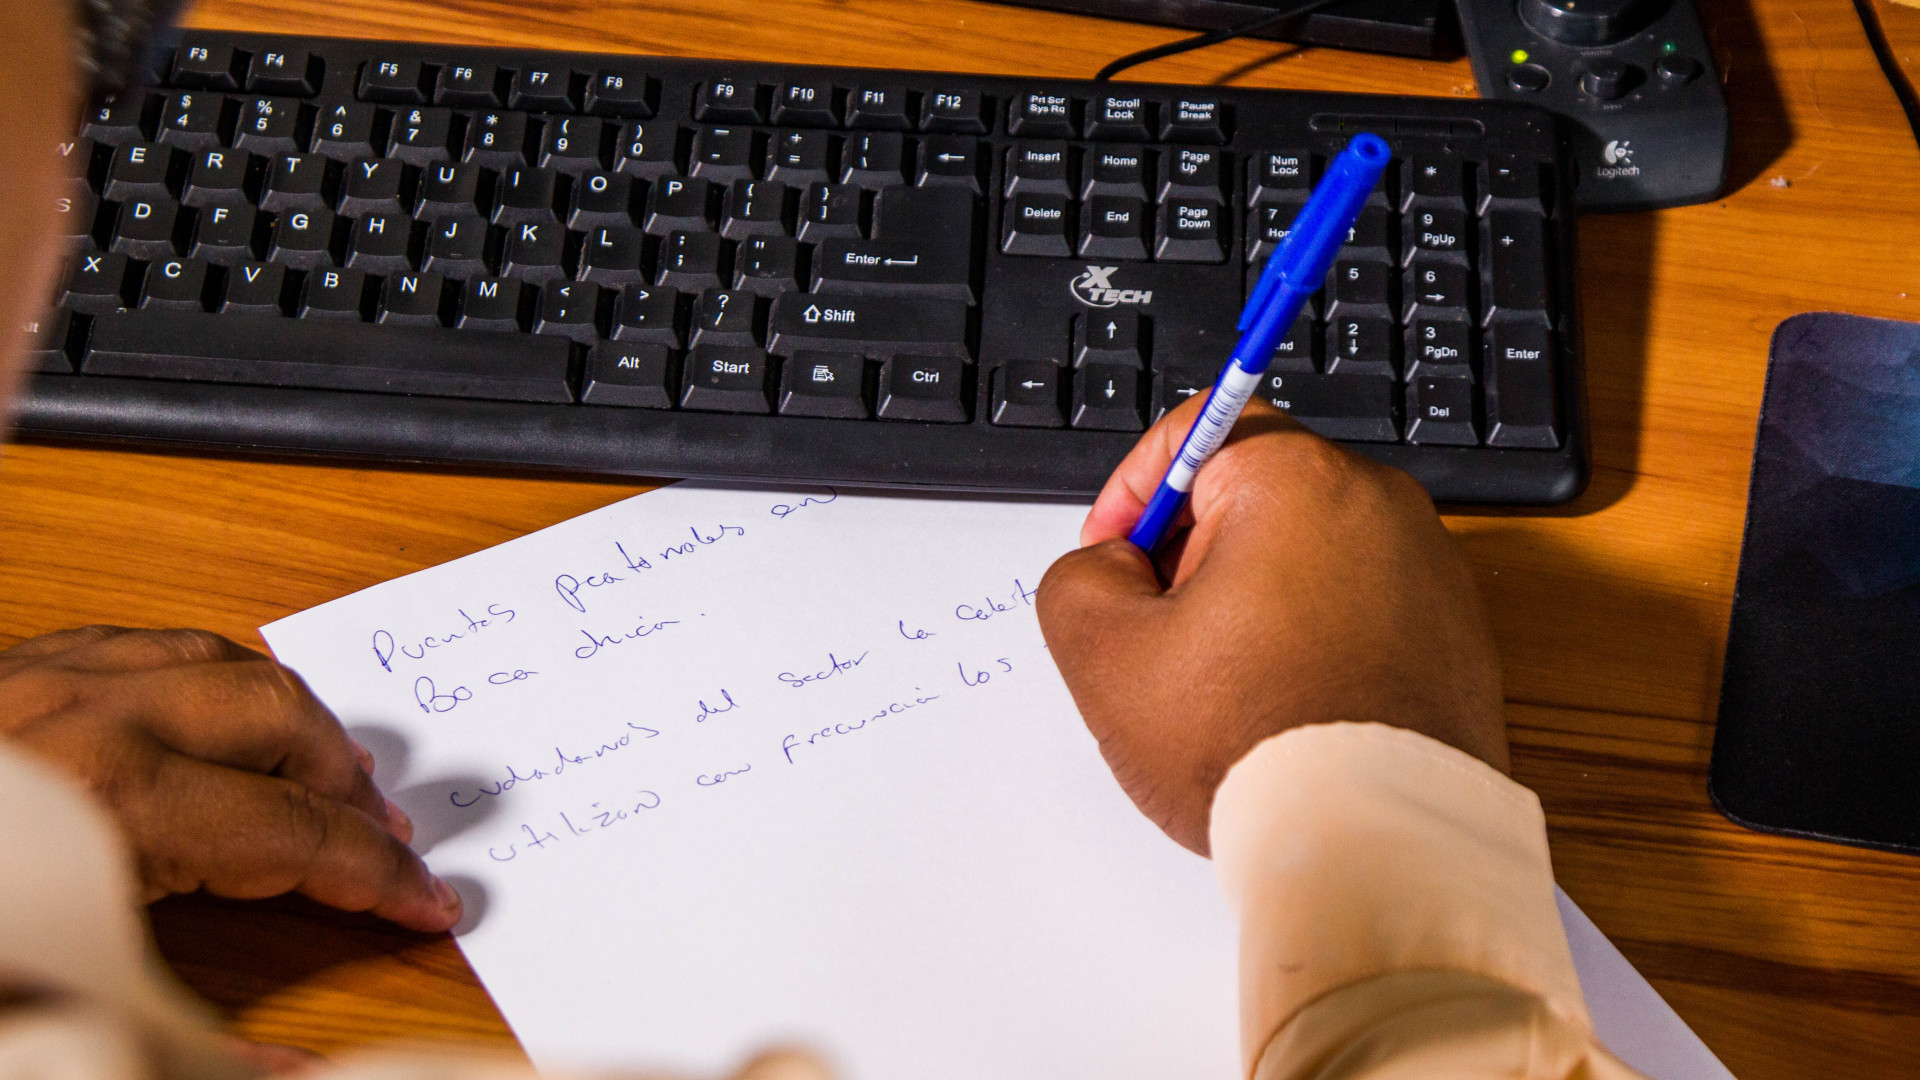 F3 F4 F5 F6 F7 F8 F9 F10 F11 F12 Prt Scr Sys Rq Scroll Lock Pause Break
3 $ 4 % 5 ^ 6 & 7 * 8 ( 9 ) 0 _ - + = | \ ← Insert Home Page Up Num Lock * -
W E R T Y U I O P { [ } ] Delete End Page Down 7 9 PgUp +
S D F G H J K L : ; " ' Enter 5 6 →
X C V B N M < , > . ? / Shift ↑ 2 ↓ 3 PgDn Enter
Alt Start Ctrl ← ↓ → 0 Ins . Del
X TECH
Logitech
Puentes peatonales en
Boca chica.
cuidadanos del sector la
utilizan con frecuencia los